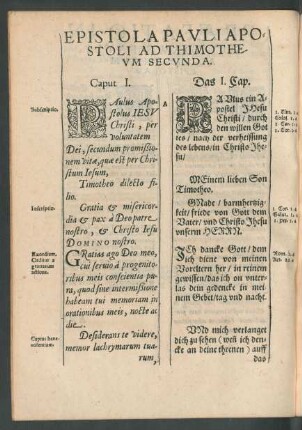 EPISTOLA PAVLI APO-
STOLI AD THIMOTHE-
VM SECVNDA.
Caput I.
PAulus Apo-
stolus IESV
Christi, per
voluntatem
Dei, secundum promissio-
nem vitæ, quæ est per Chri-
stum Iesum,
Timotheo dilecto fi-
lio.
Gratia & misericor-
dia & pax à Deo patre
nostro, & Christo Iesu
DOMINO nostro.
GRatias ago Deo meo,
cui seruio à progenito-
ribus meis conscientia pu-
ra, quòd sine intermissione
habeam tui memoriam in
orationibus meis, nocte ac
die.
Desiderans te videre,
memor lachrymarum tua-
rum,
A
Das I. Cap.
PAVlus ein A-
postel JHesu
Christi / durch
den willen Got-
tes / nach der verheissung
des lebens / in Christo JHe-
su /
MEinem lieben Son
Timotheo.
GNade / barmhertzig-
keit / friede von Gott dem
Vater / vnd Christo JHesu
vnserm HERRN.
ICh dancke Gott / dem
ich diene von meinen
Voreltern her / in reinem
gewissen / das ich on vnter-
las dein gedencke in mei-
nem Gebet / tag vnd nacht.
VNd mich verlanget
dich zu sehen (wenn ich den-
cke an deine threnen) auff
das
Subscriptio.
Inscriptio.